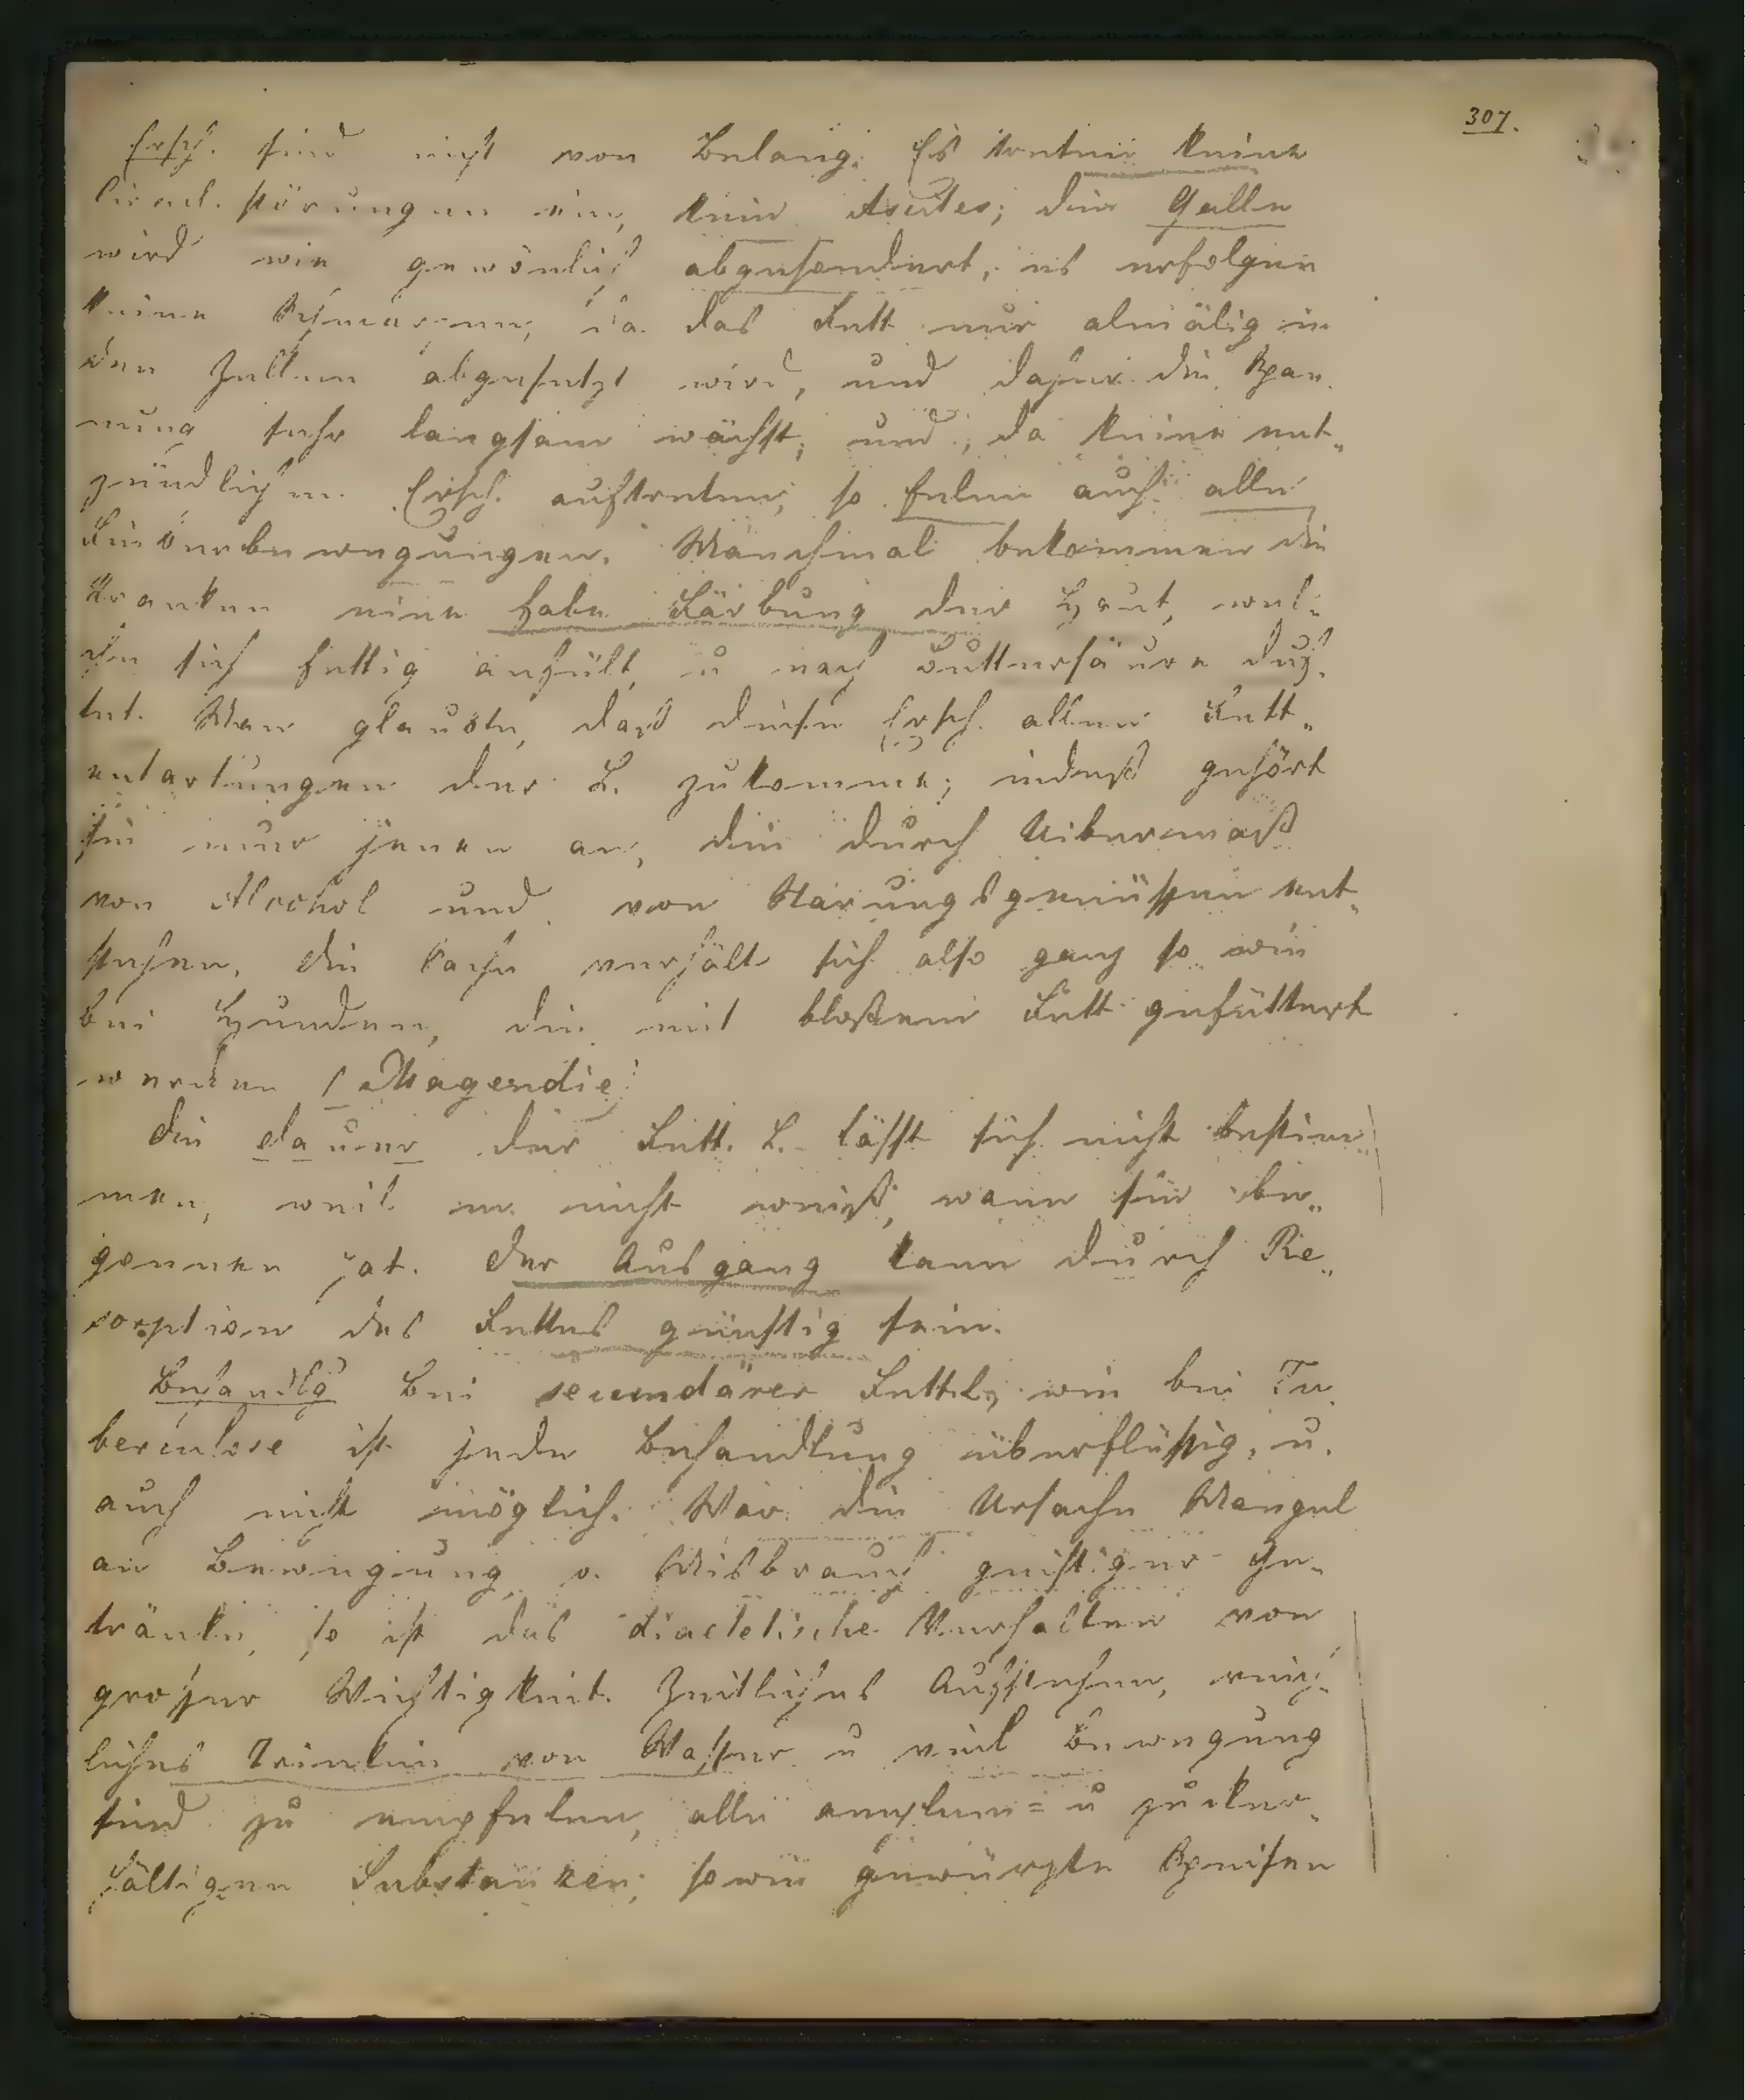 307.
Ersch. sind nicht von Belang. Es treten keine
Circul. störungen ein, kein Ascites; die Galle
wird wie gewönlich abgesondert, es erfolgen
keine Schmerzen, da das Fett nur almälig in
den Zellen abgesetzt wird, und daher die Span-
nung sehr langsam wächst, und, da keine ent„
zündlichen Ersch. auftreten, so felen auch alle
Fieberbewegungen. Manchmal bekommen die
Kranken eine Färbung der Haut, wel-
che sich fettig anfült, u nach Buttersäure duf-
tet. Man glaubte, daß diese Ersch. allen Fett„
entartungen der L. zukomme; indeß gehört
sie nur jenen an, die durch Uibermaß
von Alcohol und von Narungsgenüssen ent„
stehen, die Sache verhält sich also ganz so wie
bei Hunden, die mit bloßem Fett gefüttert
werden (Magendie)
Die Dauer der Fett. L. läßt sich nicht bestim„
men, weil m. nicht weiß, wann sie be„
gonnen hat. Der Ausgang kann durch Re„
sorption des Fettes günstig sein.
Behandlg Bei secundärer Fettl, wie bei Tu
berculose ist jede Behandlung überflüssig, u.
auch nicht möglich. War die Ursache Mangel
an Bewegung o. Misbrauch geistiger Ge„
tränke, so ist das diaetetische Verhalten von
großer Wichtigkeit. Zeitliches Aufstehen, reich-
liches Trinken von Wasser u viel Bewegung
sind zu empfelen, alle amylum= u zucker„
hältigen Substanzen, sowie gewürzte Speisen